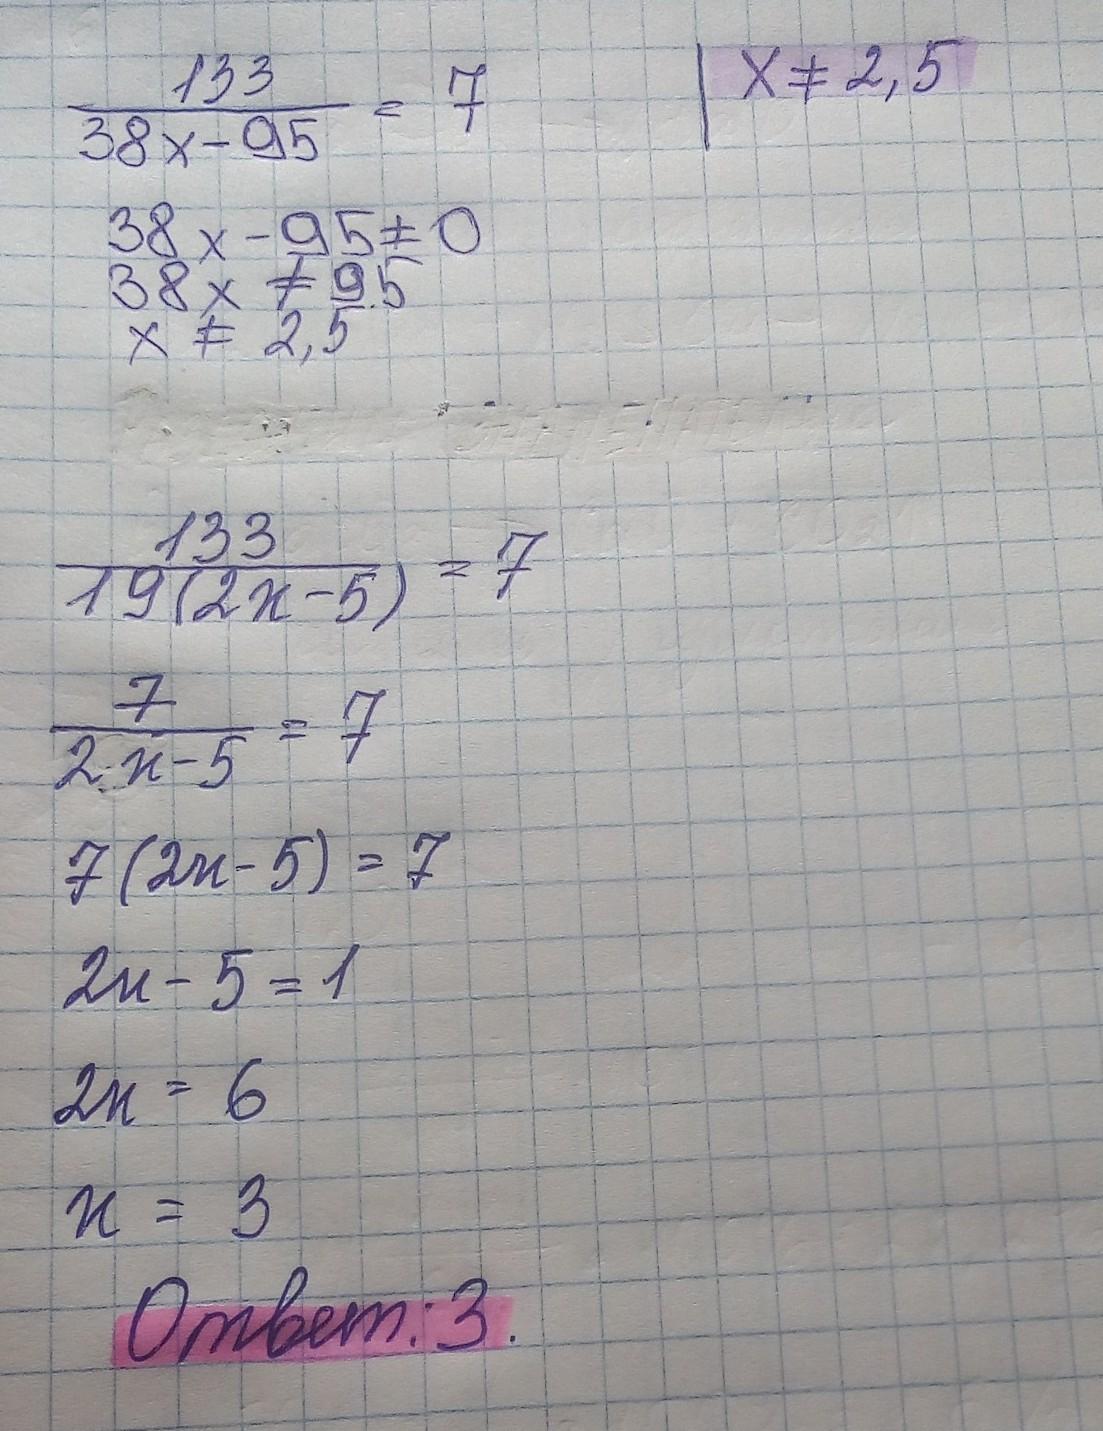 133/(38x-95) = 7 | x ≠ 2,5
38x-95≠0
38x ≠ 95
x ≠ 2,5
133/(19(2x-5)) = 7
7/(2x-5) = 7
7(2x-5) = 7
2x-5=1
2x = 6
x = 3
Ответ: 3.